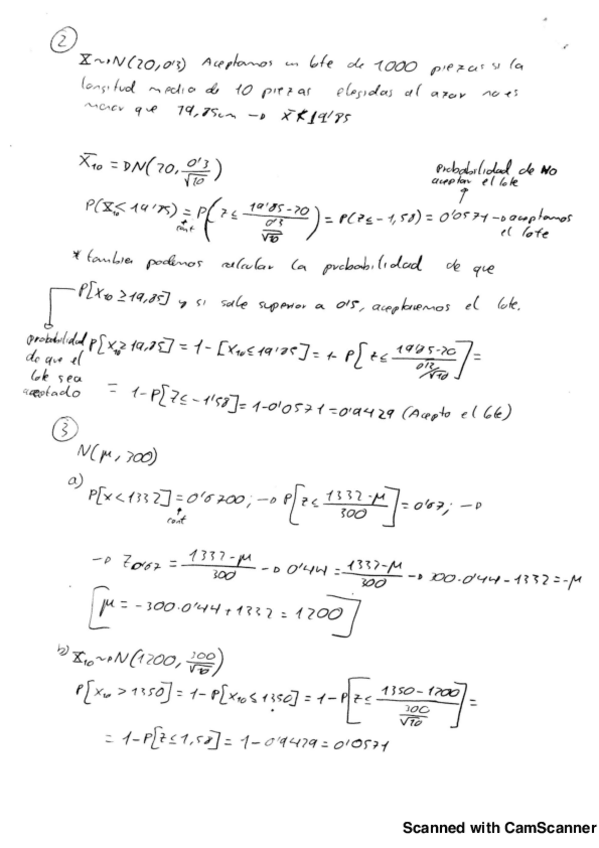 2
X~>N(20,0'3) Aceptamos un lote de 1000 piezas si la
longitud media de 10 piezas elegidas al azar no es
menor que 19,85cm → X̄ ≮ 19'85
X̄₁₀ = DN(20, 0'3/√10)
probabilidad de NO
aceptar el lote
P(X̄₁₀ ≤ 19'85) = P(Z ≤ (19'85-20)/(0'3/√10)) = P(Z ≤ -1,58) = 0'0571 → aceptamos
el lote
cont
* tambien podemos calcular la probabilidad de que
P[X₁₀ ≥ 19,85] y si sale superior a 0'5, aceptaremos el lote.
probabilidad
de que el
lote sea
aceptado
P[X₁₀ ≥ 19,85] = 1 - [X₁₀ ≤ 19'85] = 1- P[Z ≤ (19'85-20)/(0'3/√10)] =
= 1-P[Z ≤ -1'58] = 1-0'0571 = 0'9429 (Acepto el lote)
3
N(μ, 300)
a)
P[X < 1332] = 0'6700; → P[Z ≤ (1332-μ)/300] = 0'67; →
cont
→ Z₀'₆₇ = (1332-μ)/300 → 0'44 = (1332-μ)/300 → 300·0'44 - 1332 = -μ
[μ = -300·0'44 + 1332 = 1200]
b) X̄₁₀ ~> N(1200, 300/√10)
P[X₁₀ > 1350] = 1-P[X₁₀ ≤ 1350] = 1-P[Z ≤ (1350-1200)/(300/√10)] =
= 1-P[Z ≤ 1,58] = 1-0'9429 = 0'0571
Scanned with CamScanner